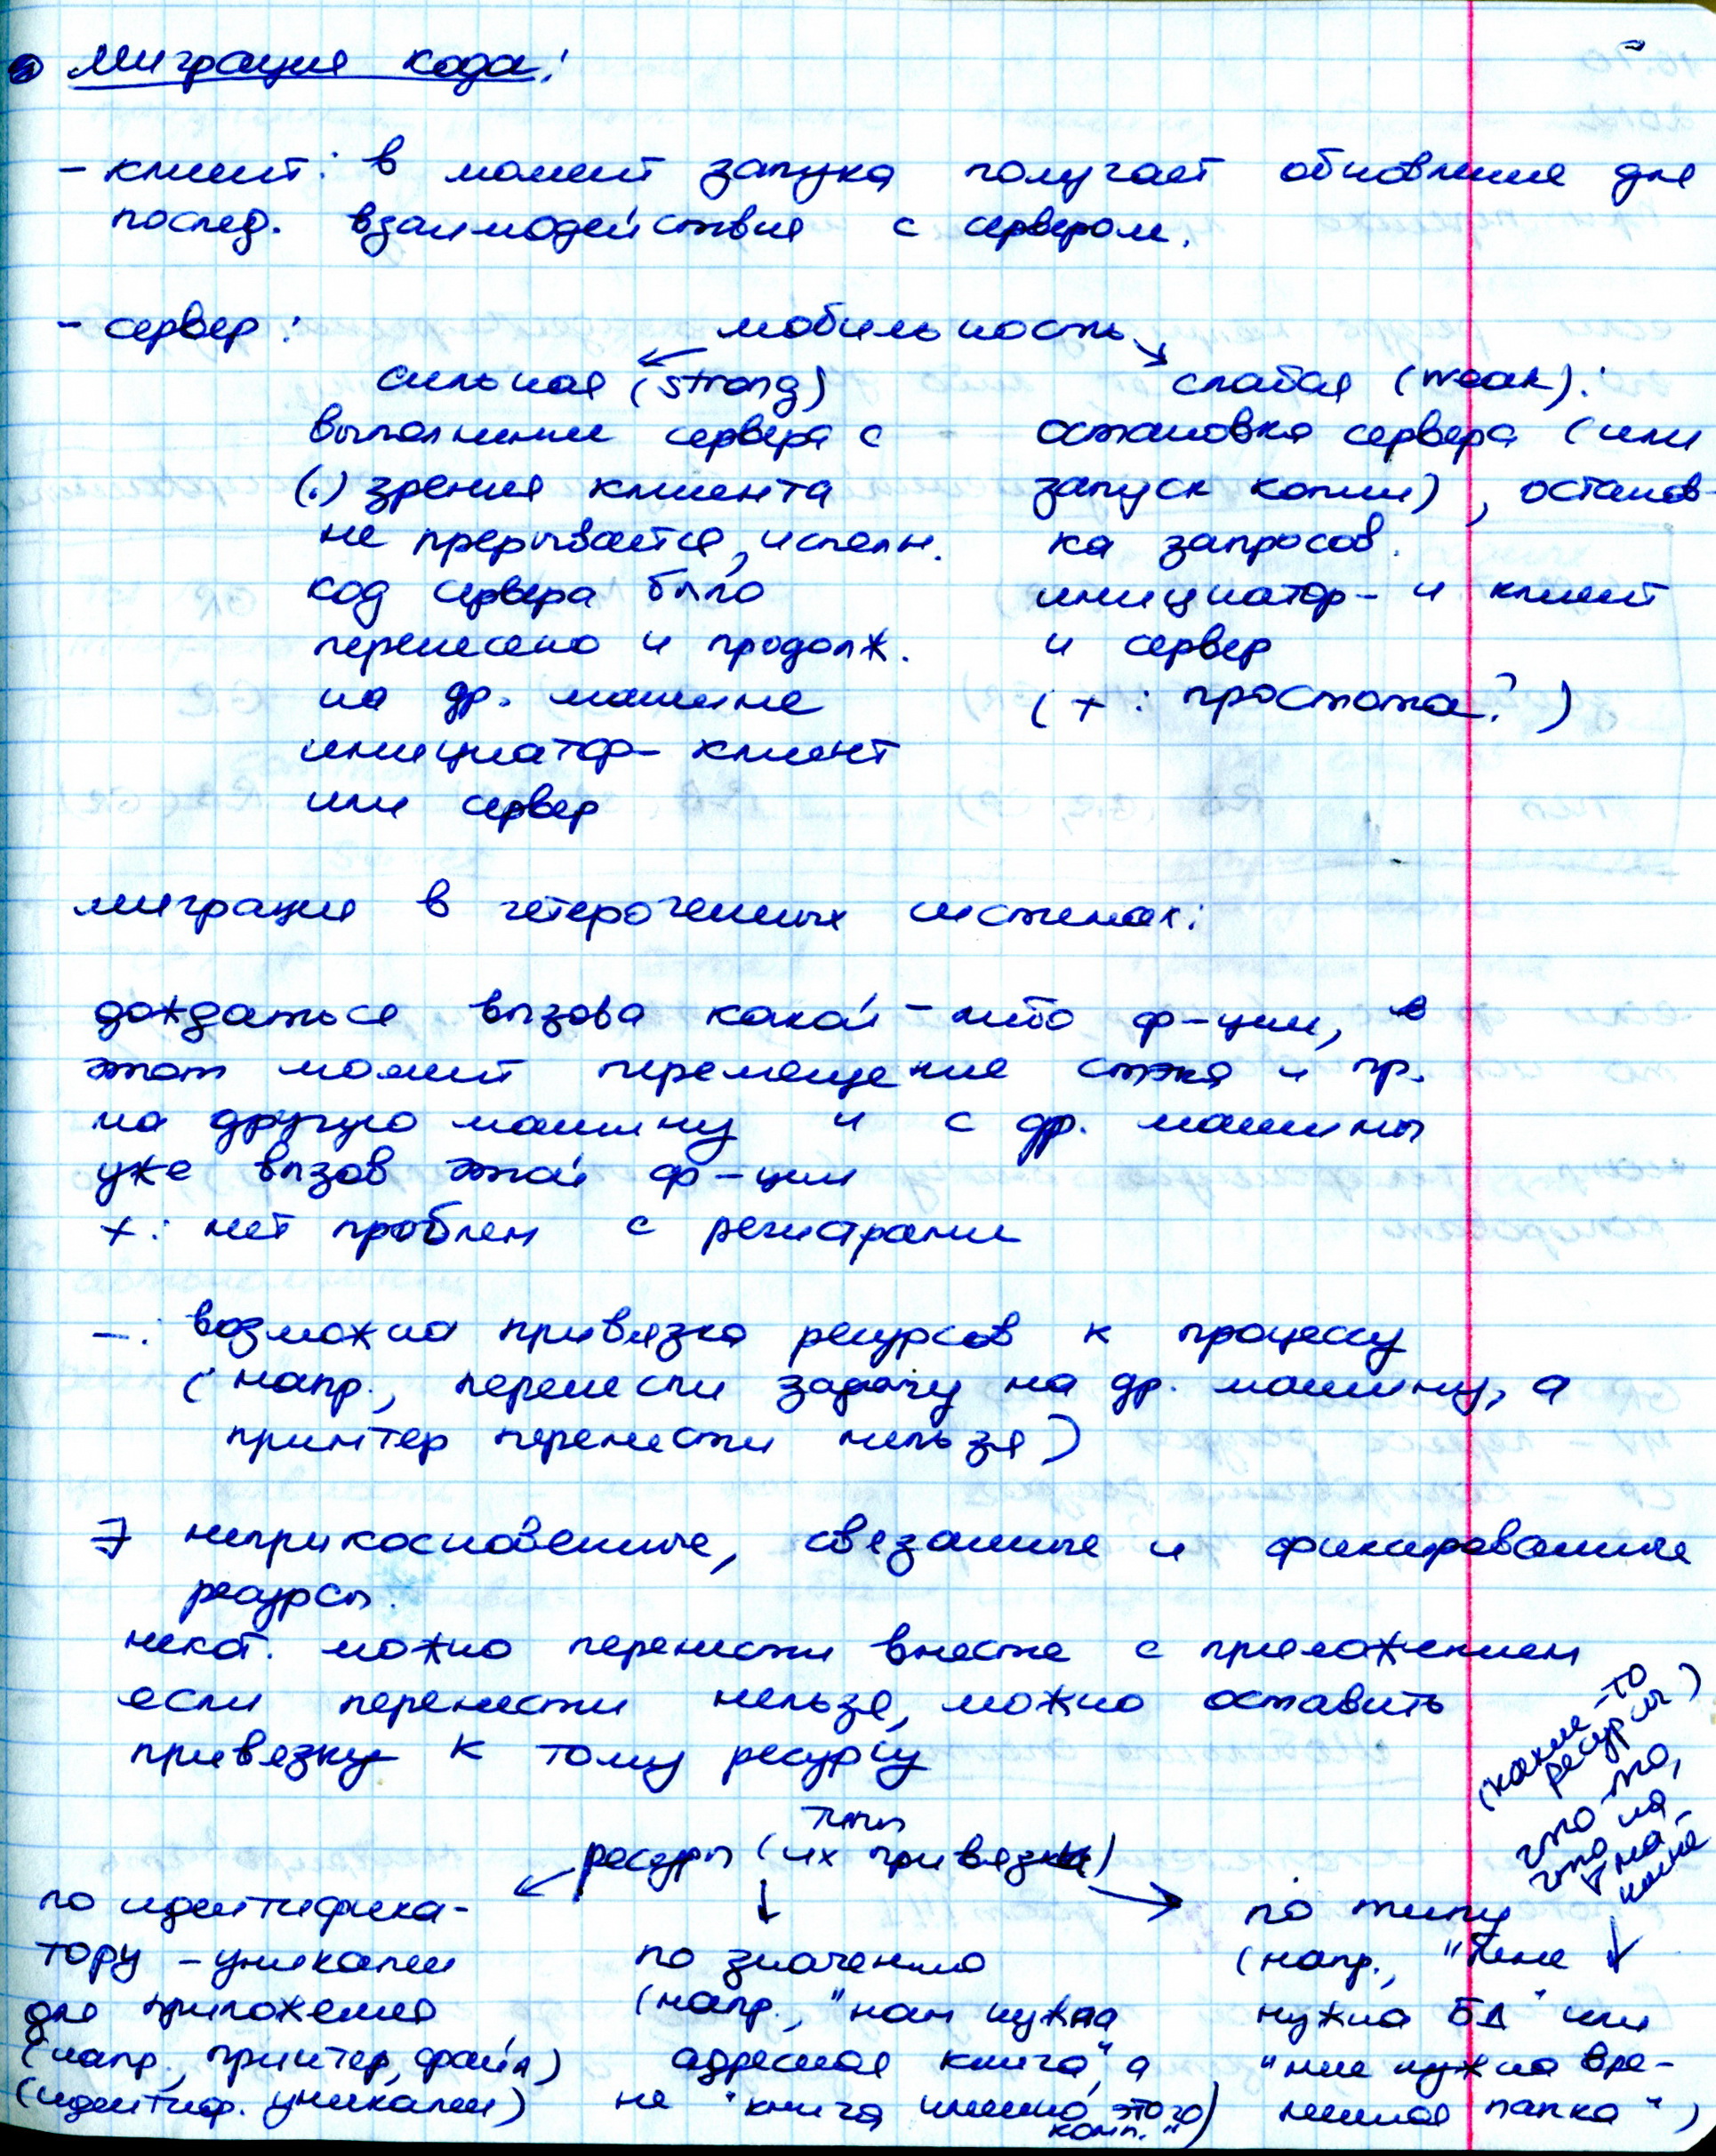 Миграция кода:
- клиент: в момент запука получает обновление для
послед. взаимодействия с сервером.
- сервер: мобильность
сильная (strong)
выполнение сервера с
(.) зрения клиента
не прерывается, исполн.
код сервера было
перенесено и продолж.
на др. машине
инициатор- клиент
или сервер
слабая (weak):
остановка сервера (или
запуск копии), останов-
ка запросов.
инициатор- и клиент
и сервер
(+: простота?)
миграция в гетерогенных системах:
дождаться вызова какой-либо ф-ции, в
этот момент перемещение стэка и пр.
на другую машину и с др. машины
уже вызов этой ф-ции
+: нет проблем с регистрами
-: возможна привязка ресурсов к процессу
(напр., перенесли задачу на др. машину, а
принтер перенести нельзя)
∃ неприкосновенные, связанные и фиксированные
ресурсы.
некот. можно перенести вместе с приложением
если перенести нельзя, можно оставить
привязку к тому ресурсу
типы
ресурсы (их привязки)
по идентифика-
тору - уникален
для приложения
(напр., принтер, файл)
(идентиф. уникален)
по значению
(напр., "нам нужна
адресная книга", а
не "книга именно этого
комп.")
(какие-то
ресурсы)
что-то,
что на
машине
по типу
(напр., "мне
нужна БД" или
"мне нужна вре-
менная папка")